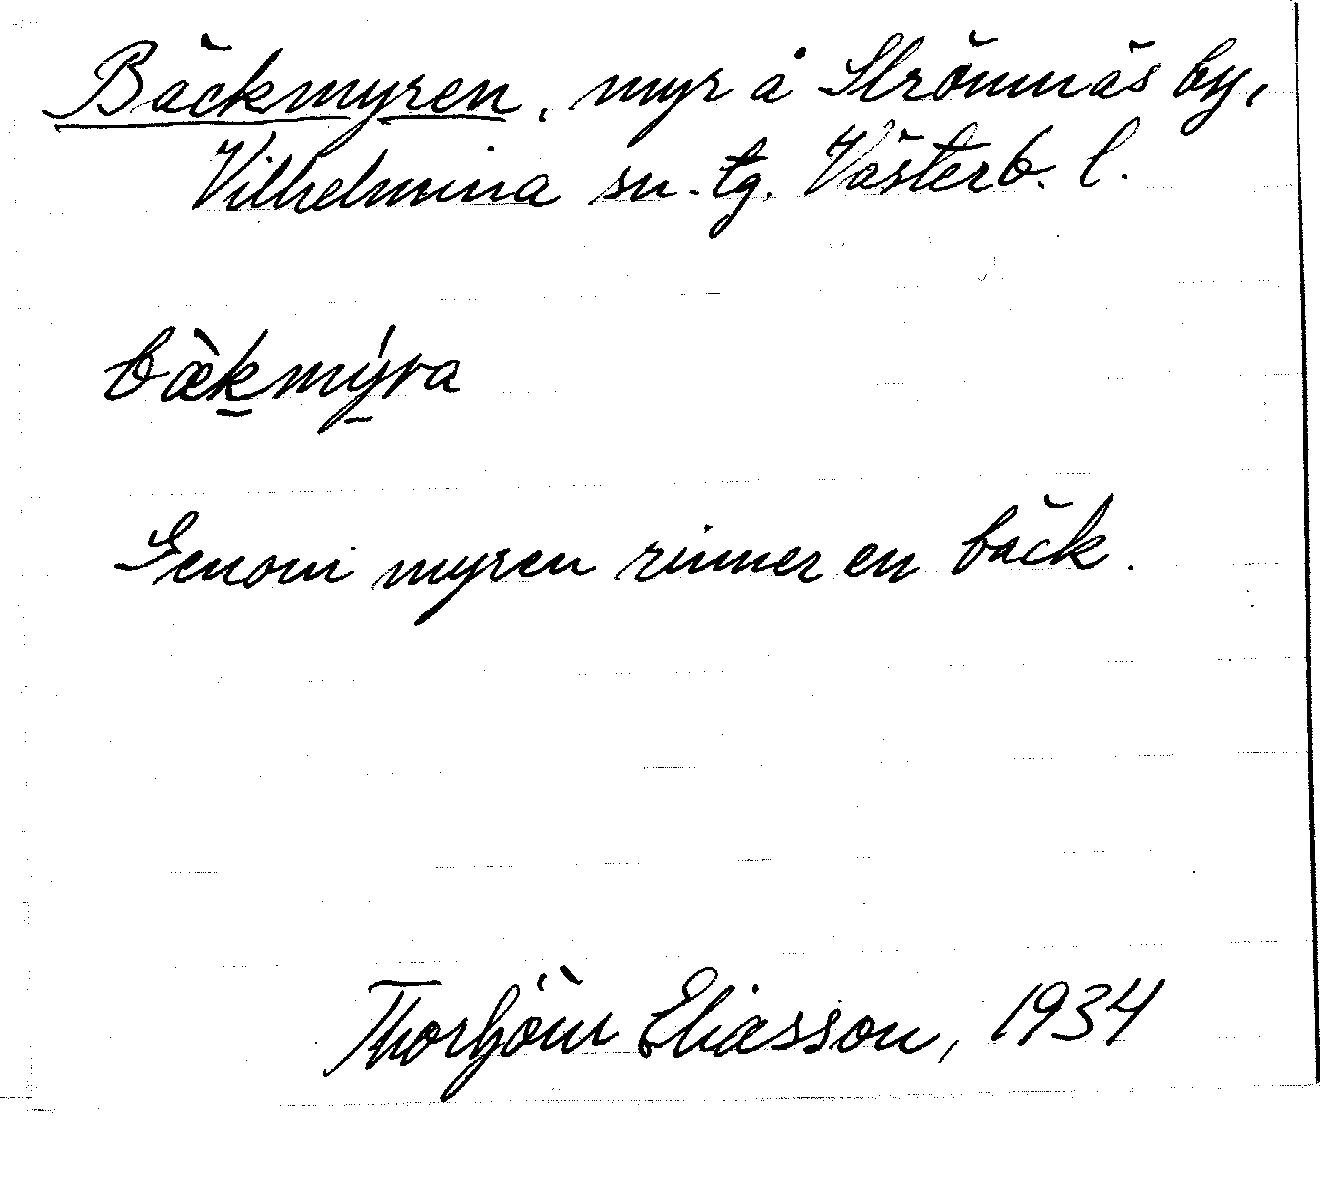 Bäckmyren, myr å Strömnäs by,
Vilhelmina sn. tg. Västerb. l.
bæ̀k̲mý̲ra
Genom myren rinner en bäck.
Thorbjörn Eliasson, 1934